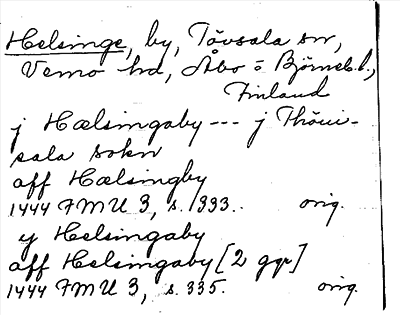 Helsinge, by, Tövsala sn,
Vemo hd, Åbo o Björneb. l.,
Finland
j Hælsingaby --- j Thöui-
sala sokn
aff Hælsingby
1444 FMU 3, s. 333. orig.
y Helsingaby
aff Helsingaby [2 ggr]
1444 FMU 3, s. 335. orig.